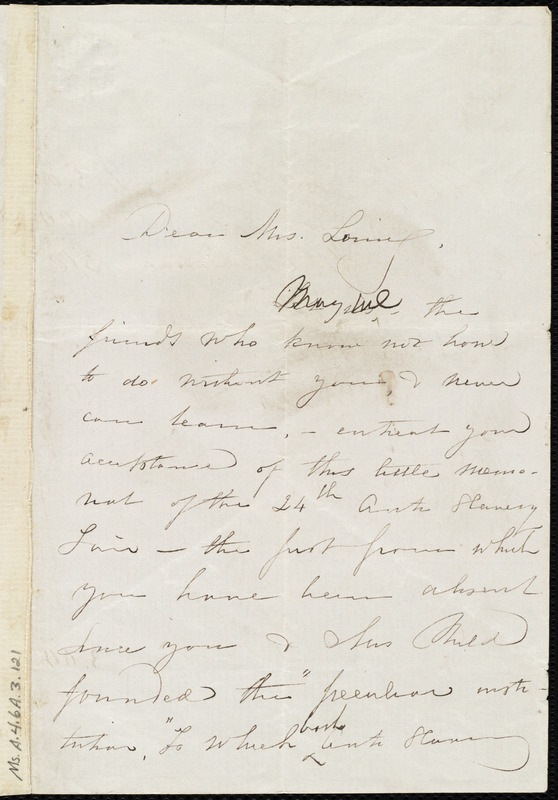 Dear Mrs. Loring,
May we, - the
friends who know not how
to do without you, & never
can learn, - entreat your
acceptance of this little memo-
rial of the 24th Anti Slavery
Fair - the first from which
you have been absent
since you & Mrs Child
founded the "peculiar insti-
tution," to which both Anti Slavery
Ms. A.4.6A.3.121